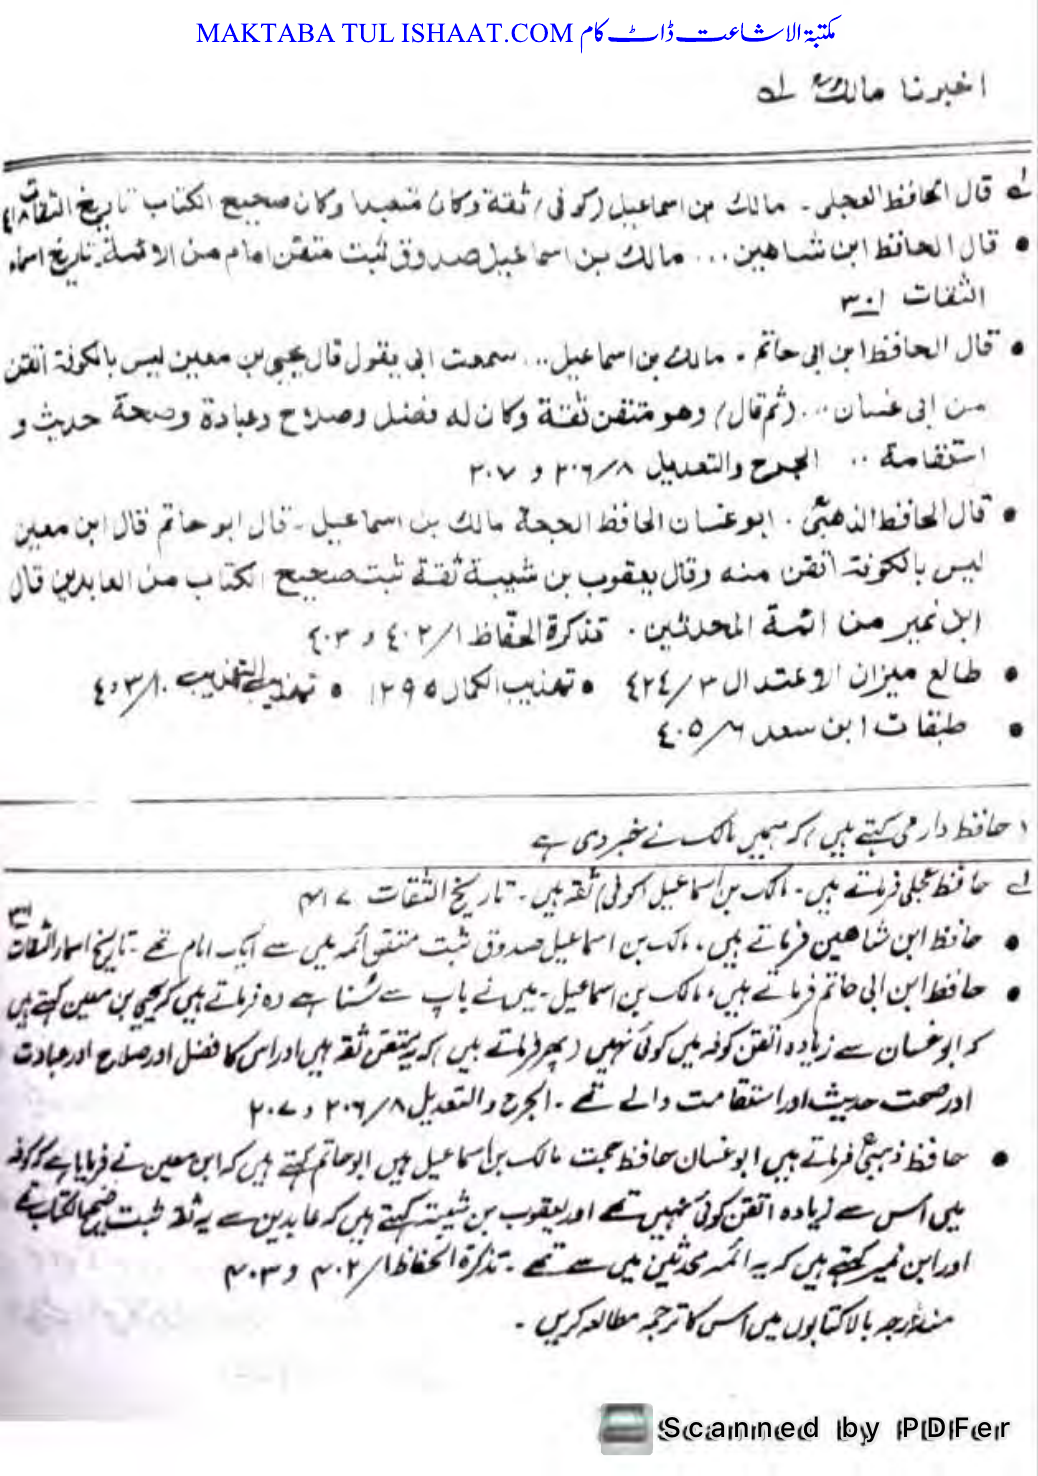 MAKTABA TUL ISHAAT.COM مکتبۃ الاشاعت ڈاٹ کام
اخبرنا مالک لہ
لہ قال الحافظ العجلی۔ مالک بن اسماعیل (کوفی) ثقة وکان متعبدا وکان صحیح الکتاب تاریخ الثقات ٤١٨
• قال الحافظ ابن شاهین ... مالک بن اسماعیل صدوق ثبت متقن امام من الائمة۔ تاریخ اسماء
الثقات ٣٠١
• قال الحافظ ابن ابی حاتم۔ مالک بن اسماعیل... سمعت ابی یقول قال یحیی بن معین لیس بالکوفة اتقن
من ابی غسان ... (ثم قال) وهو متقن ثقة وکان له فضل وصلاح وعبادة وصحة حدیث و
استقامة .. الجرح والتعدیل ٢٠٦/٨ و ٢٠٧
• قال الحافظ الذهبیؒ۔ ابو غسان الحافظ الحجة مالک بن اسماعیل۔ قال ابو حاتم قال ابن معین
لیس بالکوفة اتقن منه وقال یعقوب بن شیبة ثقة ثبت صحیح الکتاب من العابدین قال
ابن نمیر من ائمة المحدثین۔ تذکرة الحفاظ ٤٠٢/١ و ٤٠٣
• طالع میزان الاعتدال ٤٢٤/٣ • تهذیب الکمال ١٢٩٥ • تهذیب التهذیب ٤٠٣/١٠
• طبقات ابن سعد ٤٠٥/٦
حافظ دارمی کہتے ہیں کہ ہمیں مالک نے خبر دی ہے
لہ حافظ عجلی فرماتے ہیں۔ مالک بن اسماعیل (کوفی) ثقہ ہیں۔ تاریخ الثقات ۴۱۷
• حافظ ابن شاهین فرماتے ہیں۔ مالک بن اسماعیل صدوق ثبت متقن ائمہ میں سے ایک امام تھے۔ تاریخ اسماء الثقات
• حافظ ابن ابی حاتم فرماتے ہیں، مالک بن اسماعیل۔ میں نے باپ سے سُنا ہے وہ فرماتے ہیں کہ یحیی بن معین کہتے ہیں
کہ ابو غسان سے زیادہ اتقن کوفہ میں کوئی نہیں (پھر فرماتے ہیں) کہ یہ متقن ثقہ ہیں اور اس کا فضل اور صلاح اور عبادت
اور صحت حدیث اور استقامت والے تھے۔ الجرح والتعدیل ۲۰۶/۸ و ۲۰۷
• حافظ ذہبیؒ فرماتے ہیں ابو غسان حافظ حجت مالک بن اسماعیل ہیں ابو حاتم کہتے ہیں کہ ابن معین نے فرمایا ہے کہ کوفہ
میں اس سے زیادہ اتقن کوئی نہیں تھے اور یعقوب بن شیبة کہتے ہیں کہ عابدین سے یہ ثقہ ثبت صحیح الکتاب تھے
اور ابن نمیر کہتے ہیں کہ یہ ائمہ محدثین میں سے تھے۔ تذکرة الحفاظ ۴۰۲/۱ و ۴۰۳
مندرجہ بالا کتابوں میں اس کا ترجمہ مطالعہ کریں۔
Scanned by PDFer